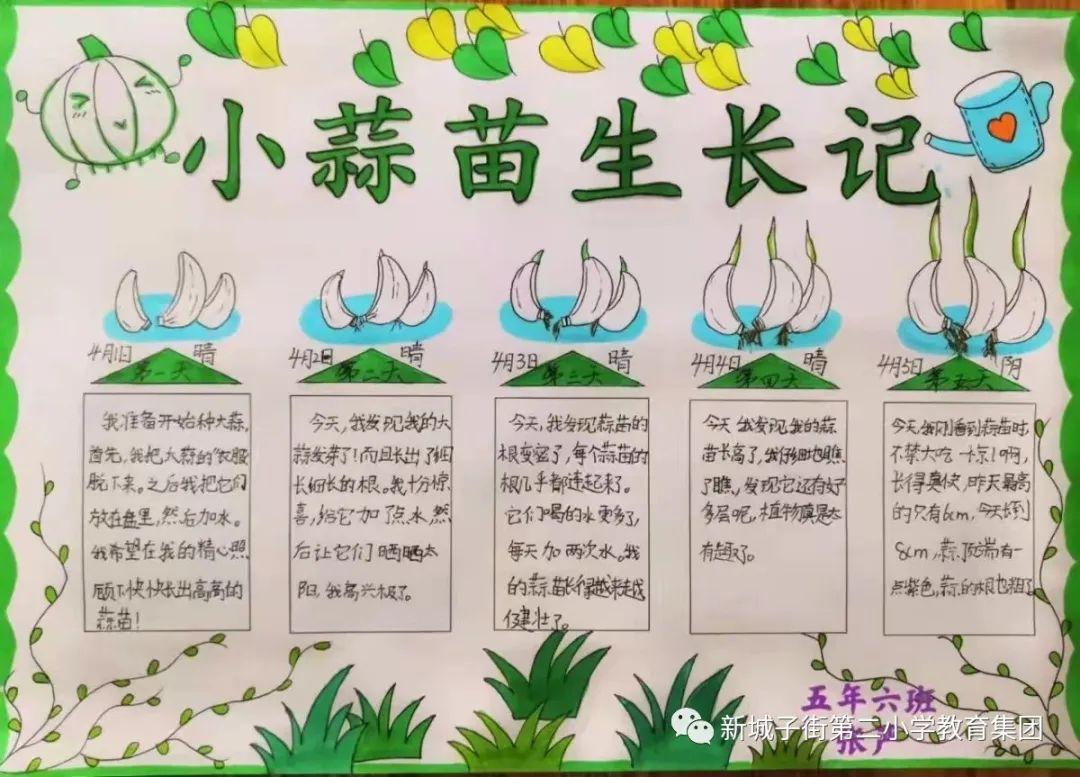 小蒜苗生长记
4月1日 晴
第一天
我准备开始种大蒜,
首先,我把大蒜的“衣服
脱下来。之后我把它们
放在盘里,然后加水。
我希望在我的精心照
顾下快快长出高高的
蒜苗!
4月2日 晴
第二天
今天,我发现我的大
蒜发芽了!而且长出了细
长细长的根。我十分惊
喜,给它加了点水,然
后让它们晒晒太
阳,我高兴极了。
4月3日 晴
第三天
今天,我发现蒜苗的
根变密了,每个蒜苗的
根几乎都连起来了。
它们喝的水更多了,
每天加两次水。我
的蒜苗长得越来越
健壮了。
4月4日 晴
第四天
今天我发现我的蒜
苗长高了,我仔细地瞧
了瞧,发现它还有好
多层呢,植物真是太
有趣了。
4月5日 阴
第五天
今天,我刚看到蒜苗时,
不禁大吃一惊!啊,
长得真快,昨天最高
的只有6cm,今天长到
8cm,蒜顶端有一
点紫色,蒜的根也粗了
五年六班
新城子街第二小学教育集团